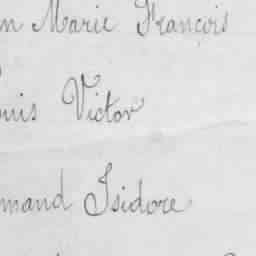 n Marie François
uis Victor
mand Isidore